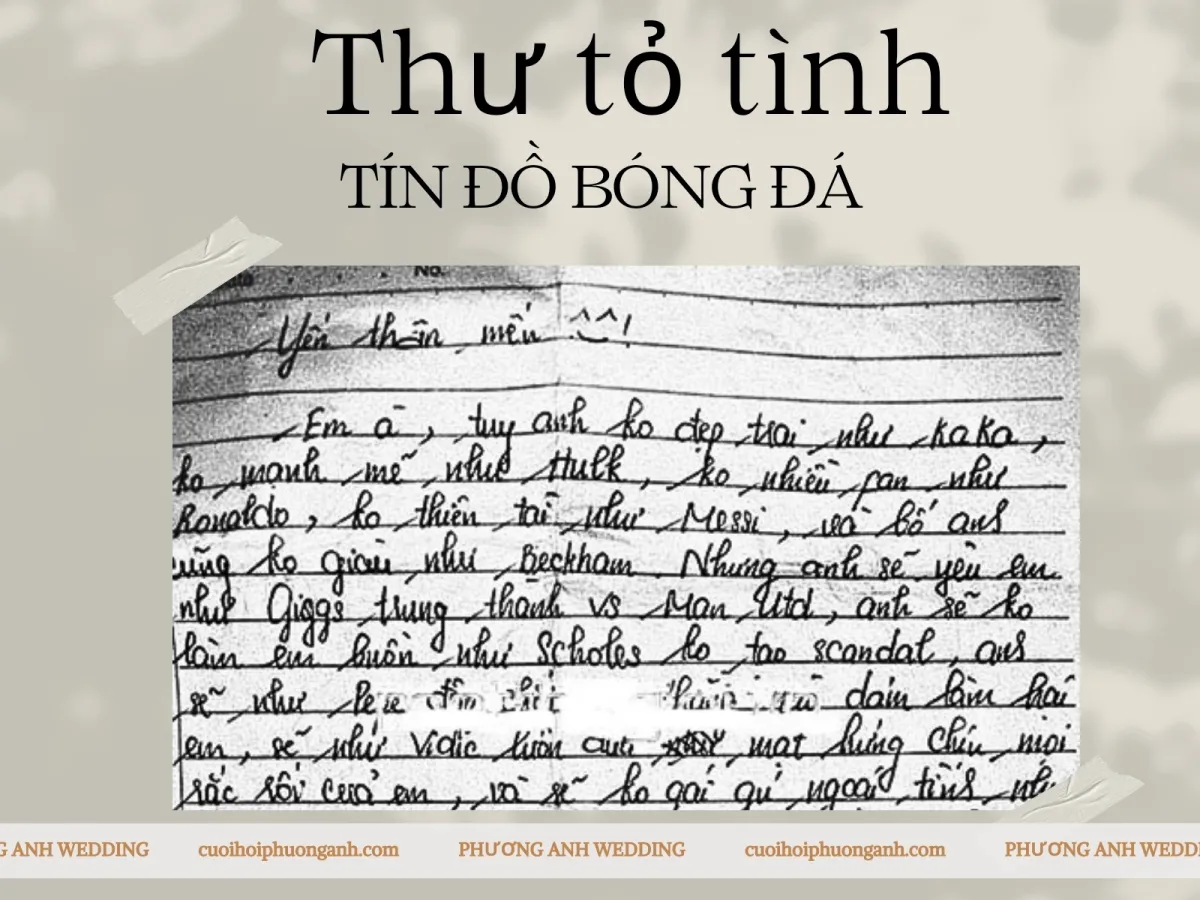 Thư tỏ tình
TÍN ĐỒ BÓNG ĐÁ
No.
Yến thân mến ^^!
Em à, tuy anh ko đẹp trai như KaKa,
ko mạnh mẽ như Hulk, ko nhiều fan như
Ronaldo, ko thiên tài như Messi, và bố anh
cũng ko giàu như Beckham. Nhưng anh sẽ yêu em
như Giggs trung thành vs Man Utd, anh sẽ ko
làm em buồn như Scholes ko tạo scandal, anh
sẽ như Pepe dám làm hại
em, sẽ như Vidic luôn mạt hứng chịu mọi
rắc rối của em, và sẽ ko gái gú ngoại tình như
G ANH WEDDING cuoihoiphuonganh.com PHƯƠNG ANH WEDDING cuoihoiphuonganh.com PHƯƠNG ANH WEDD